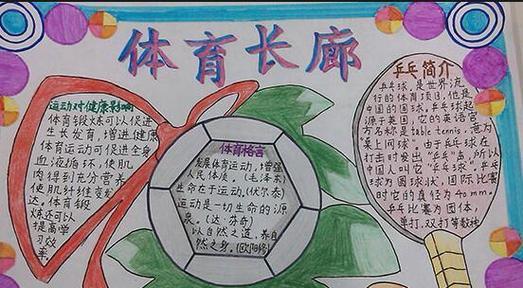 体育长廊
运动对健康影响
体育锻炼可以促进
生长发育,增进健康
体育运动可促进全身
血液循环,使肌
肉得到充分营养
使肌纤维变发
达,体育锻
炼还可以
提高学
习效
率。
体育格言
发展体育运动,增强
人民体质。(毛泽东)
生命在于运动。(伏尔泰)
运动是一切生命的源
泉。(达·芬奇)
以自然之道,养自
然之身。(欧阳修)
乒乓简介
乒乓球,是世界流
行的体育项目,他是
中国的国球。乒乓球起
源于英国,它的英语官
方名称是table tennis,意为
桌上网球。由于乒乓球在
打击时发出"乒乓"声,所以
中国人叫它"乒乓球"乒乓
球为圆球状,国际比赛
时它的直径为40mm,
乒乓比赛为团体,
单打,双打等数种